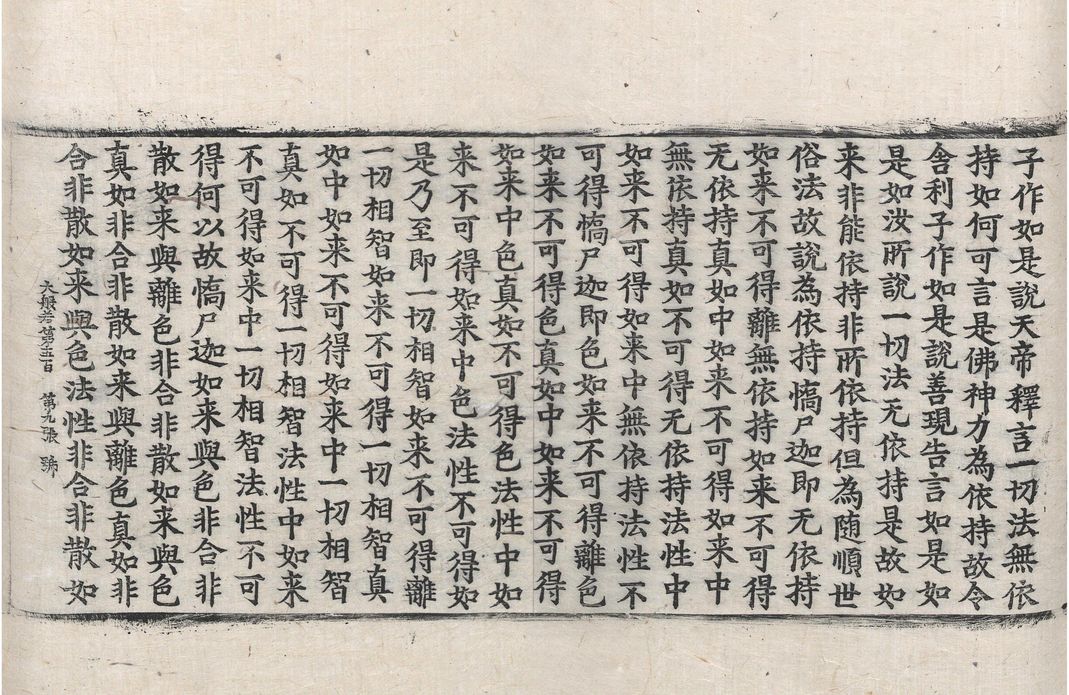 子作如是說天帝釋言一切法無依
持如何可言是佛神力為依持故令
舍利子作如是說善現告言如是如
是如汝所說一切法无依持是故如
来非能依持非所依持但為随順世
俗法故說為依持憍尸迦即无依持
如来不可得離無依持如来不可得
无依持真如中如来不可得如来中
無依持真如不可得无依持法性中
如来不可得如来中無依持法性不
可得憍尸迦即色如来不可得離色
如来不可得色真如中如来不可得
如来中色真如不可得色法性中如
来不可得如来中色法性不可得如
是乃至即一切相智如来不可得離
一切相智如来不可得一切相智真
如中如来不可得如来中一切相智
真如不可得一切相智法性中如来
不可得如来中一切相智法性不可
得何以故憍尸迦如来與色非合非
散如来與離色非合非散如来與色
真如非合非散如来與離色真如非
合非散如来與色法性非合非散如
大般若第五百 第九張 號